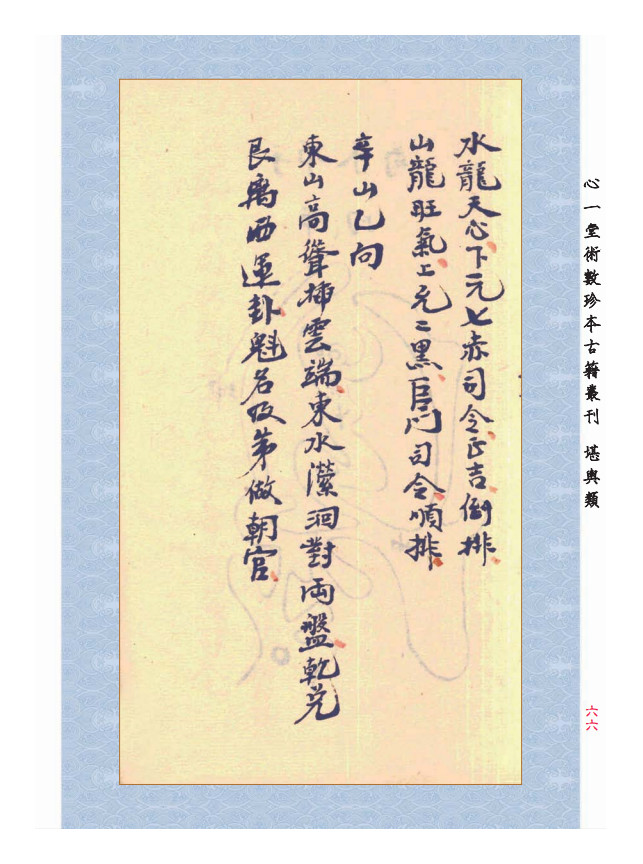 水龍天心下元七赤司令正吉倒排
山龍旺氣上元二黑巨门司令順排
辛山乙向
東山高聳插雲端東水瀠洄對両盤乾兑
艮离西運卦魁名及第做朝官
心一堂術數珍本古籍叢刊 堪輿類
六六